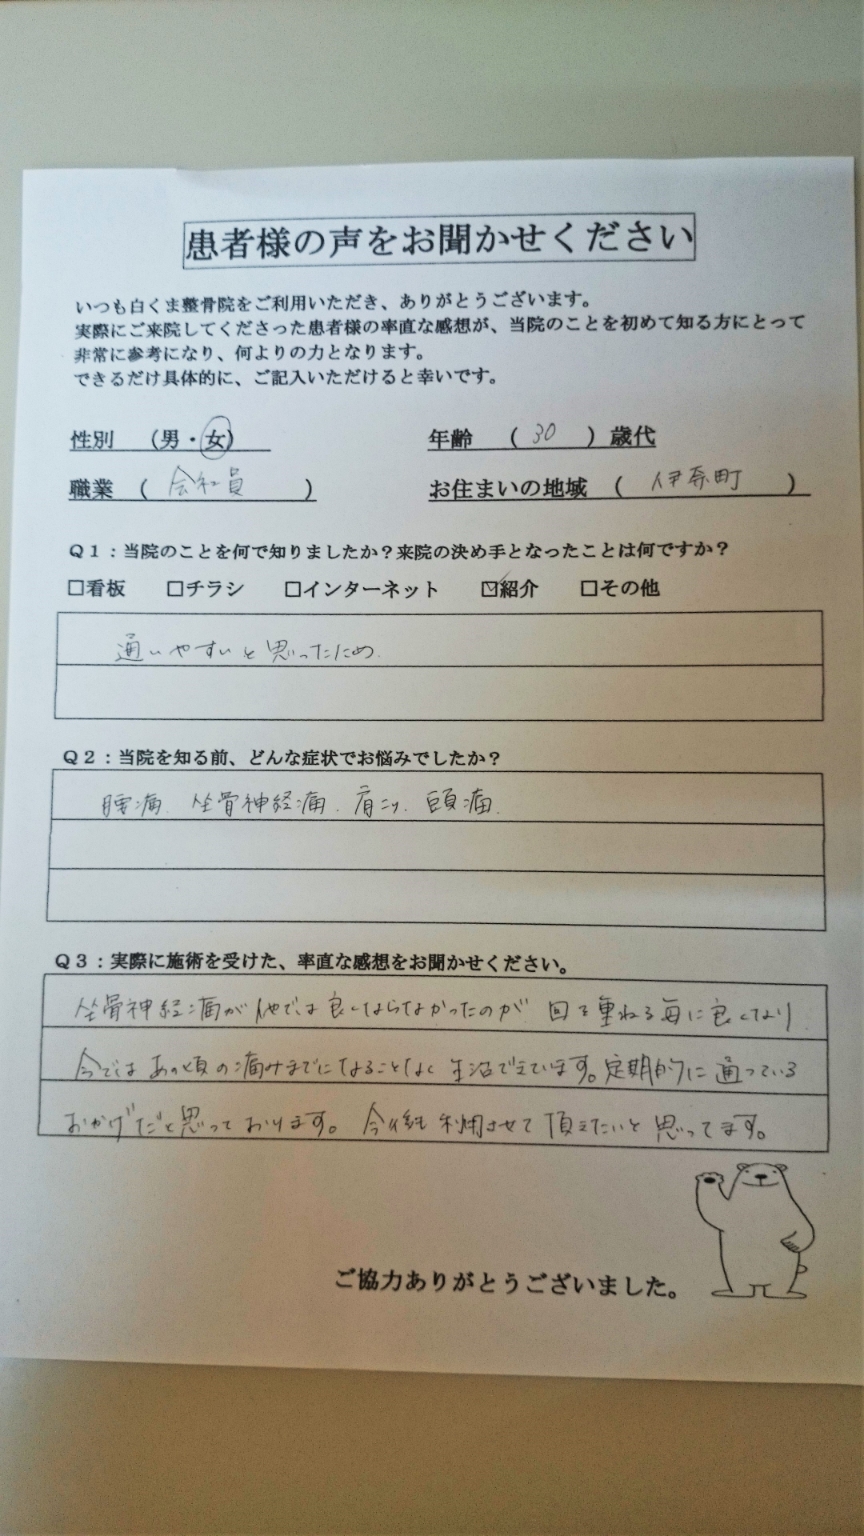 患者様の声をお聞かせください
いつも白くま整骨院をご利用いただき、ありがとうございます。
実際にご来院してくださった患者様の率直な感想が、当院のことを初めて知る方にとって
非常に参考になり、何よりの力となります。
できるだけ具体的に、ご記入いただけると幸いです。
性別 （男・女） 年齢 （ 30 ）歳代
職業 （ 会社員 ） お住まいの地域 （ 伊奈町 ）
Q1：当院のことを何で知りましたか？来院の決め手となったことは何ですか？
□看板 □チラシ □インターネット ☑紹介 □その他
通いやすいと思ったため
Q2：当院を知る前、どんな症状でお悩みでしたか？
腰痛、坐骨神経痛、肩こり、頭痛
Q3：実際に施術を受けた、率直な感想をお聞かせください。
坐骨神経痛が他では良くならなかったのが 回を重ねる毎に良くなり
今では あの頃の痛みまでになることなく 生活できています。定期的に通っている
おかげだと思っております。 今後も利用させて頂きたいと思ってます。
ご協力ありがとうございました。